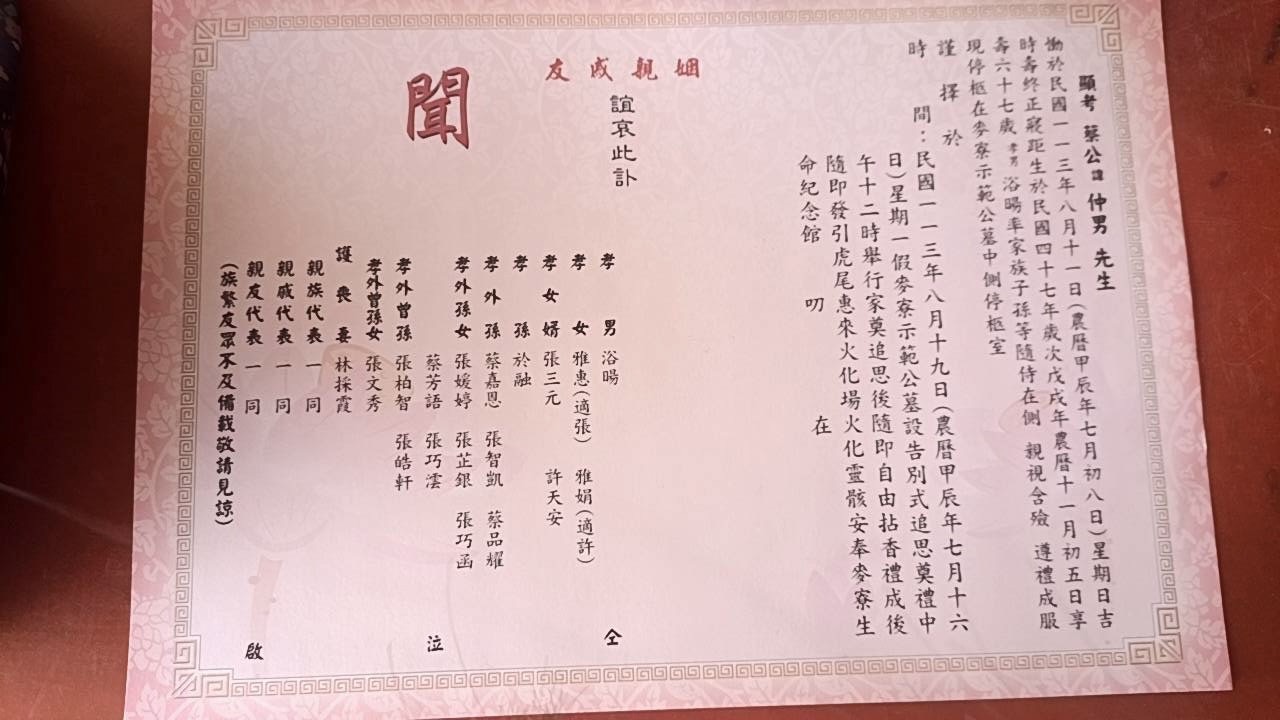 顯考 蔡公諱仲男 先生
慟於民國一一三年八月十一日(農曆甲辰年七月初八日)星期日吉
時壽終正寢距生於民國四十七年歲次戊戌年農曆十一月初五日享
壽六十七歲 孝男 浴暘率家族子孫等隨侍在側 親視含殮 遵禮成服
現停柩在麥寮示範公墓中側停柩室
謹擇於
時間:民國一一三年八月十九日(農曆甲辰年七月十六
日)星期一假麥寮示範公墓設告別式追思奠禮中
午十二時舉行家奠追思後隨即自由拈香禮成後
隨即發引虎尾惠來火化場火化靈骸安奉麥寮生
命紀念館 叨 在
姻親戚友
誼哀此訃
聞
孝男 浴暘 仝
孝女 雅惠(適張) 雅娟(適許)
孝女婿 張三元 許天安
孝孫 於融
孝外孫 蔡嘉恩 張智凱 蔡品耀
孝外孫女 張媛婷 張芷銀 張巧函
蔡芳語 張巧澐 泣
孝外曾孫 張柏智 張皓軒
孝外曾孫女 張文秀
護喪妻 林採霞
親族代表 一同
親戚代表 一同
親友代表 一同 啟
(族繁友眾不及備載敬請見諒)